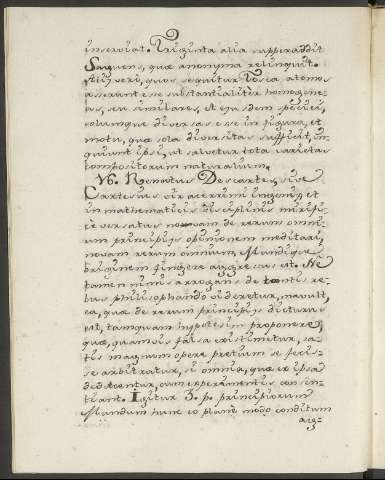 inserviat. Triginta alia superaddit
Saguens, quæ anonyma relinquit.
Alij verò, quos sequitur Tosca atomos
asserunt esse substantialiter homogene-
as, seu similares, et ejusdem speciei,
solumque diversas esse in figura, et
motu, quæ sola diversitas sufficit, in-
quiunt ipsi, ut salvetur tota varietas
compositorum naturalium.
V6. Renatus Descartes, sive
Cartesius vir acerrimi ingenij, et
in mathematicis disciplinis mirifi-
cè versatus novam de rerum omni-
um principijs opinionem meditari,
novam rerum omnium, Mundique
originem fingere aggressus est. Ne
tamen nimis arrogans de tantis re-
bus philosophando videretur, mavult,
ea, quæ de rerum principijs dicturus
est, tamquam hypotesim proponere,
quæ, quamvis falsa existimetur, sa-
tis magnum operæ pretium se fecis-
se arbitratur, si omnia, quæ ex ipsa
deducentur, cum experimentis consen-
tiant. Igitur 3. p. principiorum
Mundum hunc eo planè modo conditum